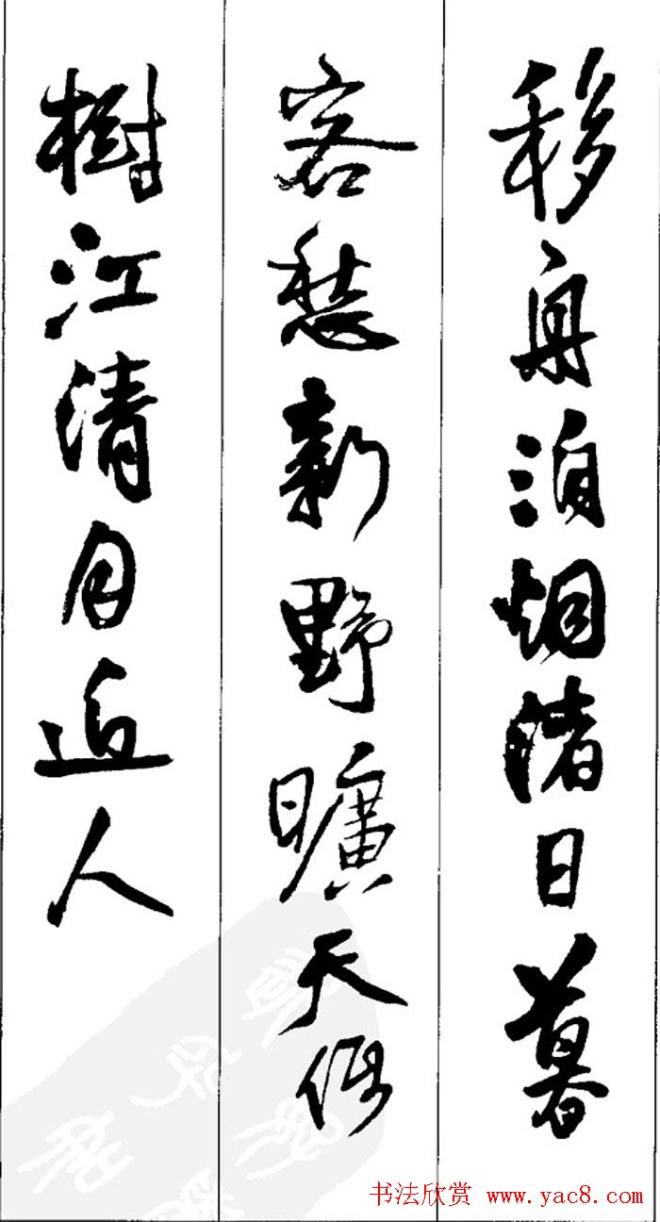 移舟泊烟渚日暮
客愁新野曠天低
樹江清月近人
书法欣赏 www.yac8.com